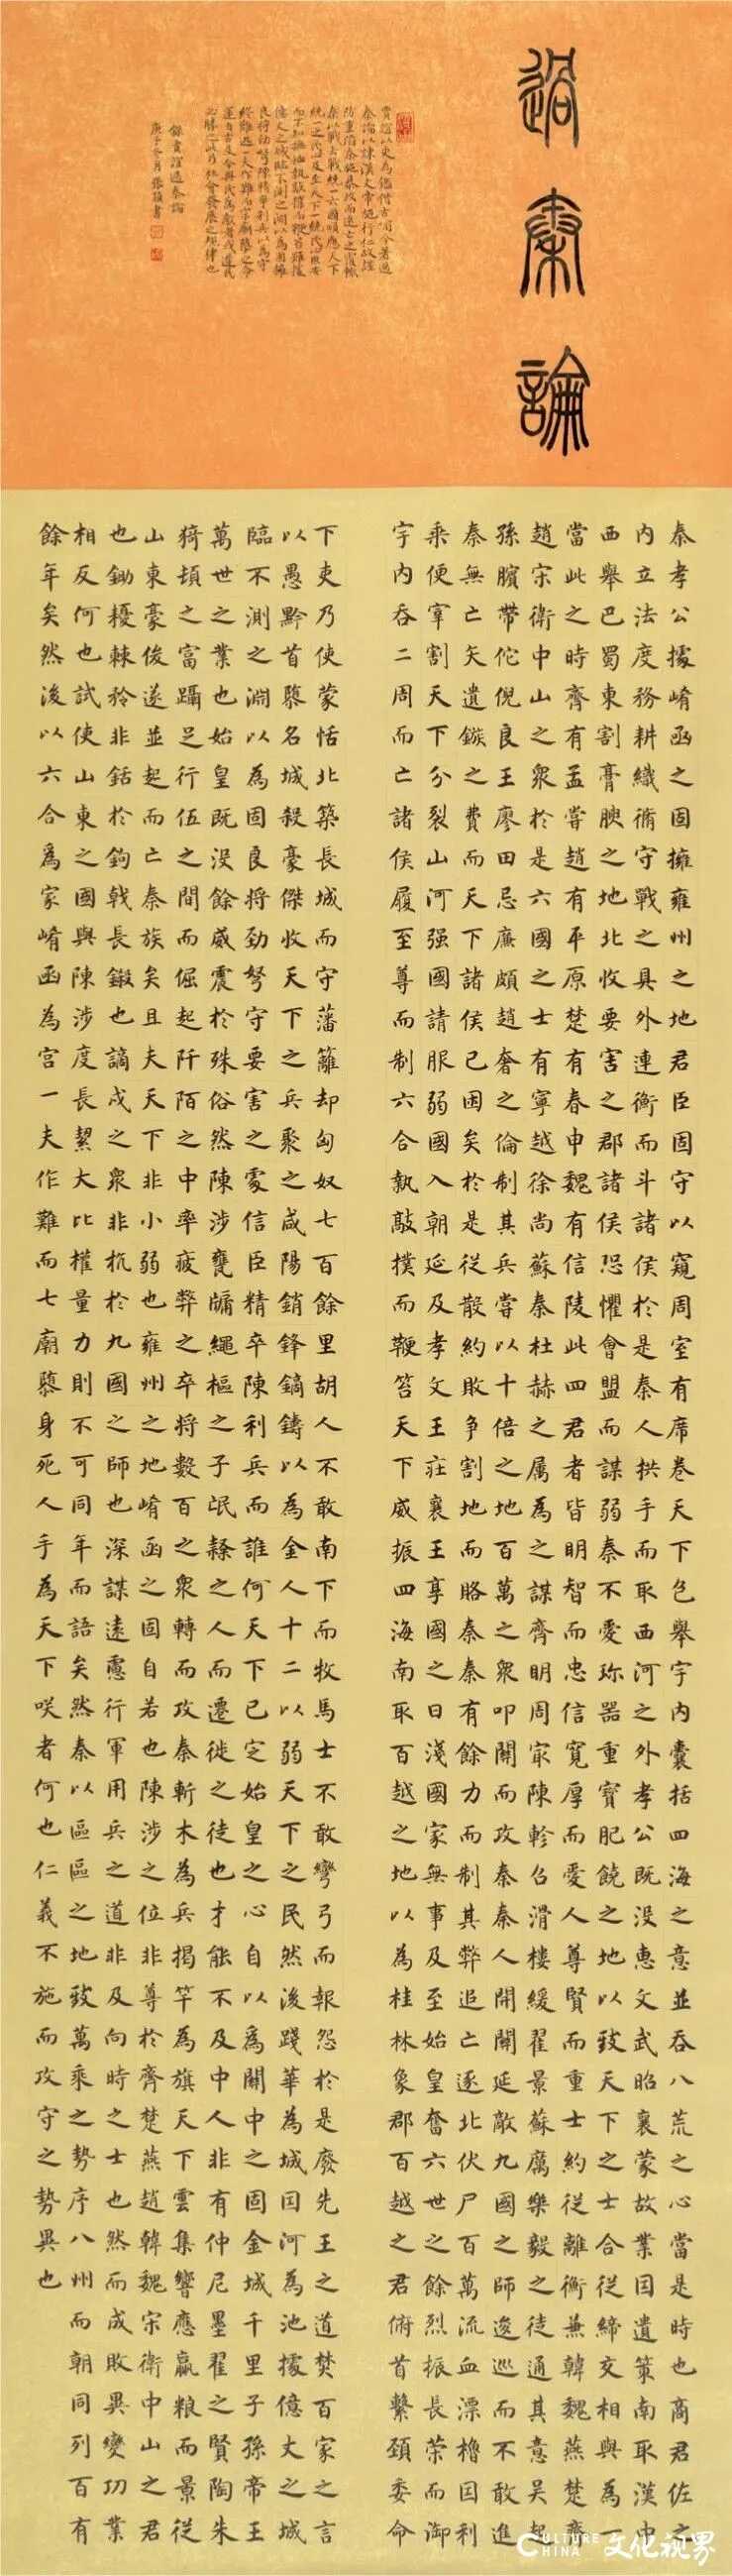 過秦論
賈誼以史為鑑借古喻今著過
秦論以諫漢文帝施行仁政謹
防重蹈秦施暴政而速亡之覆轍
秦以戰去戰統一六國順應
必勝 社會發展之規律也
錄賈誼過秦論
庚子冬月 書
秦孝公據崤函之固擁雍州之地君臣固守以窺周室有席卷天下包舉宇內囊括四海之意並吞八荒之心當是時也商君佐之
內立法度務耕織脩守戰之具外連衡而斗諸侯於是秦人拱手而取西河之外孝公既没惠文武昭襄蒙故業因遺策南取漢中
西舉巴蜀東割膏腴之地北收要害之郡諸侯恐懼會盟而謀弱秦不愛珍器重寶肥饒之地以致天下之士合從締交相與為一
當此之時齊有孟嘗趙有平原楚有春申魏有信陵此四君者皆明智而忠信寬厚而愛人尊賢而重士約從離衡兼韓魏燕楚齊
趙宋衛中山之眾於是六國之士有寧越徐尚蘇秦杜赫之属為之謀齊明周最陳軫召滑樓緩翟景蘇厲樂毅之徒通其意吳起
孫臏帶佗倪良王廖田忌廉頗趙奢之倫制其兵嘗以十倍之地百萬之眾叩關而攻秦秦人開關延敵九國之師逡巡而不敢進
秦無亡矢遺鏃之費而天下諸侯已困矣於是從散約敗爭割地而賂秦秦有餘力而制其弊追亡逐北伏尸百萬流血漂櫓因利
乘便宰割天下分裂山河强國請服弱國入朝延及孝文王莊襄王享國之日淺國家無事及至始皇奮六世之餘烈振長策而御
宇內吞二周而亡諸侯履至尊而制六合執敲撲而鞭笞天下威振四海南取百越之地以為桂林象郡百越之君俯首繫頸委命
下吏乃使蒙恬北築長城而守藩籬却匈奴七百餘里胡人不敢南下而牧馬士不敢彎弓而報怨於是廢先王之道焚百家之言
以愚黔首隳名城殺豪傑收天下之兵聚之咸陽銷鋒鏑鑄以為金人十二以弱天下之民然後踐華為城因河為池據億丈之城
臨不測之淵以為固良將劲弩守要害之處信臣精卒陳利兵而誰何天下已定始皇之心自以為關中之固金城千里子孫帝王
萬世之業也始皇既没餘威震於殊俗然陳涉甕牖繩樞之子氓隸之人而遷徙之徒也才能不及中人非有仲尼墨翟之賢陶朱
猗頓之富躡足行伍之間而倔起阡陌之中率疲弊之卒將數百之眾轉而攻秦斬木為兵揭竿為旗天下雲集響應贏粮而景從
山東豪俊遂並起而亡秦族矣且夫天下非小弱也雍州之地崤函之固自若也陳涉之位非尊於齊楚燕趙韓魏宋衛中山之君
也鋤櫌棘矜非銛於鉤戟長鎩也謫戍之眾非抗於九國之師也深謀遠慮行軍用兵之道非及向時之士也然而成敗異變功業
相反何也試使山東之國與陳涉度長絜大比權量力則不可同年而語矣然秦以區區之地致萬乘之勢序八州而朝同列百有
餘年矣然後以六合爲家崤函為宮一夫作難而七廟隳身死人手為天下咲者何也仁義不施而攻守之勢異也
CULTURE
CHINA 文化视界